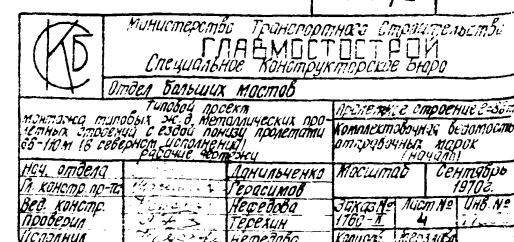 Министерство Транспортного Строительства
ГЛАВМОСТОСТРОЙ
Специальное Конструкторское Бюро
Отдел больших мостов
Типовой проект
монтажа типовых ж.д. металлических про-
летных строений с ездой понизу пролетами
-110м (в северном исполнении)
рабочие чертежи
Пролетное строение
Комплектовочная ведомость
отправочных марок
(начало)
Нач. отдела Данильченко
Гл. констр. пр-та Герасимов
Вед. констр. Нефедова
Проверил Терехин
Исполнил Нефедова
Масштаб Сентябрь
1970г.
Заказ № Лист № Инв. №
4